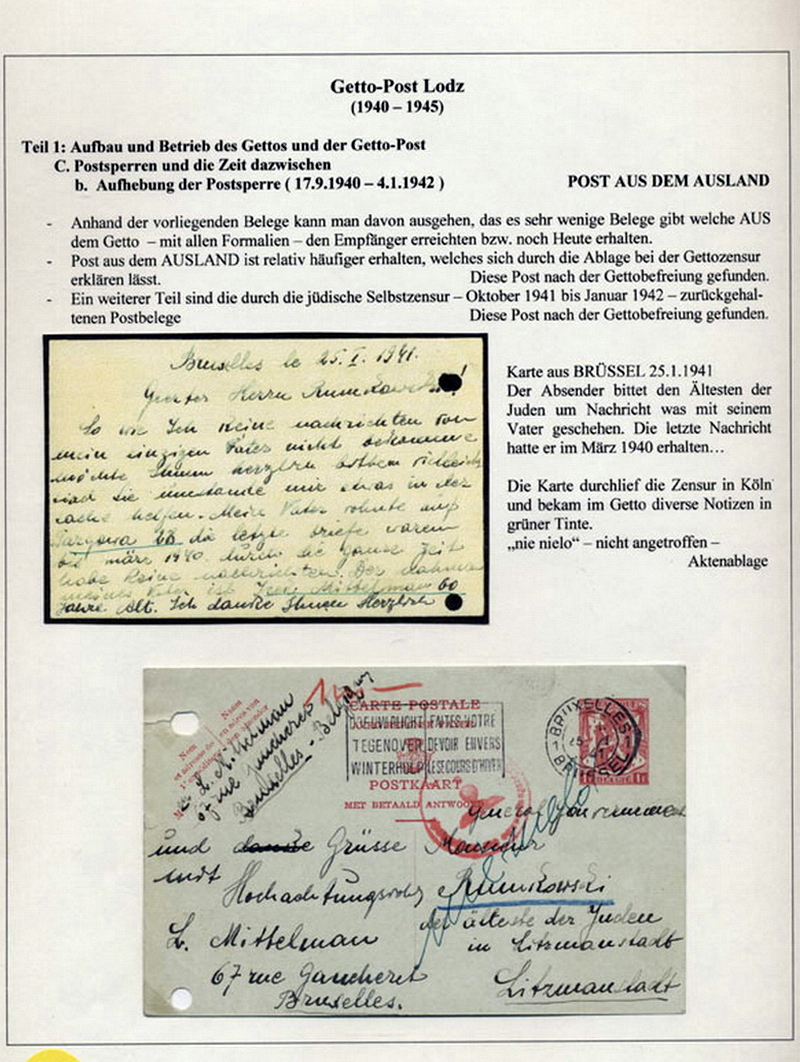 Getto-Post Lodz
(1940 – 1945)
Teil 1: Aufbau und Betrieb des Gettos und der Getto-Post
C. Postsperren und die Zeit dazwischen
b. Aufhebung der Postsperre ( 17.9.1940 – 4.1.1942 ) POST AUS DEM AUSLAND
- Anhand der vorliegenden Belege kann man davon ausgehen, das es sehr wenige Belege gibt welche AUS
dem Getto – mit allen Formalien – den Empfänger erreichten bzw. noch Heute erhalten.
- Post aus dem AUSLAND ist relativ häufiger erhalten, welches sich durch die Ablage bei der Gettozensur
erklären lässt. Diese Post nach der Gettobefreiung gefunden.
- Ein weiterer Teil sind die durch die jüdische Selbstzensur – Oktober 1941 bis Januar 1942 – zurückgehal-
tenen Postbelege Diese Post nach der Gettobefreiung gefunden.
Bruxelles le 25.I.1941.
Herrn
So wie Ich Keine nachrichten von
mein einzigen Vater nicht
möchte Ihnen herzlich
mir etwas in der
sache helfen. Mein Vater wohnte auf
die letzte briefe waren
märz 1940. durch die ganze Zeit
habe Keine nachrichten. Der
Vater ist Mittelman 60
Jahre Alt. Ich danke Ihnen Herzlich
Karte aus BRÜSSEL 25.1.1941
Der Absender bittet den Ältesten der
Juden um Nachricht was mit seinem
Vater geschehen. Die letzte Nachricht
hatte er im März 1940 erhalten…
Die Karte durchlief die Zensur in Köln
und bekam im Getto diverse Notizen in
grüner Tinte.
„nie nielo“ – nicht angetroffen –
Aktenablage
CARTE POSTALE
FAITES VOTRE
TEGENOVER DEVOIR ENVERS
WINTERHULP LE SECOURS D'HIVER
POSTKAART
MET BETAALD ANTWOORD
BRUXELLES
BRUSSEL
67 rue Gaucheret
Bruxelles - Belgique
und danke Grüsse Monsieur
mit
Hochachtungsvoll Rumkowski
der älteste der Juden
L. Mittelman in Litzmanstadt
67 rue Gaucheret
Litzmanstadt
Bruxelles.